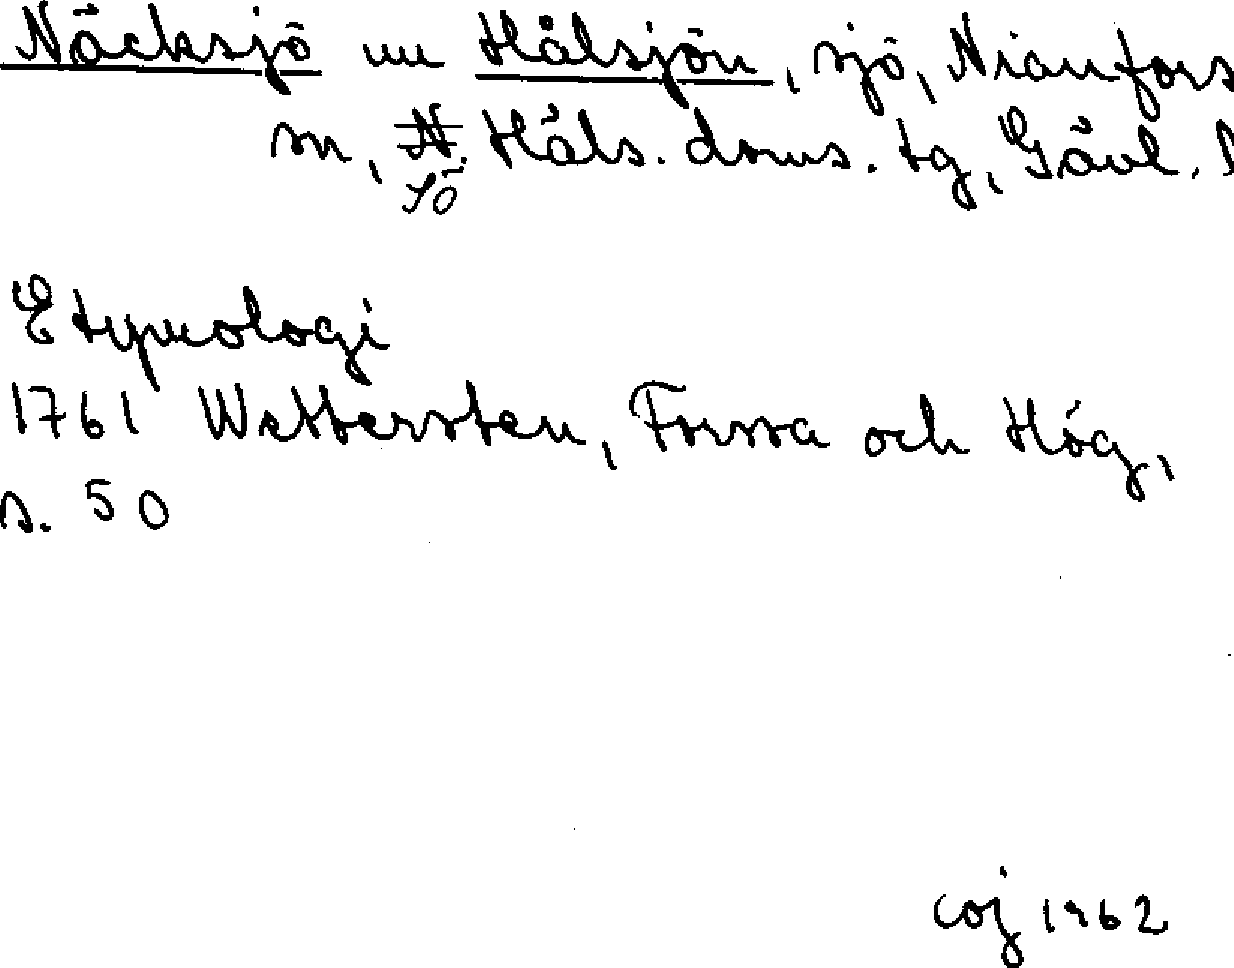 Näcksjö nu Hålsjön, sjö, Nianfors
sn, N. Häls. doms. tg, Gävl. l
Sö
Etymologi
1761 Wettersten, Forssa och Hög,
s. 50
coj 1962